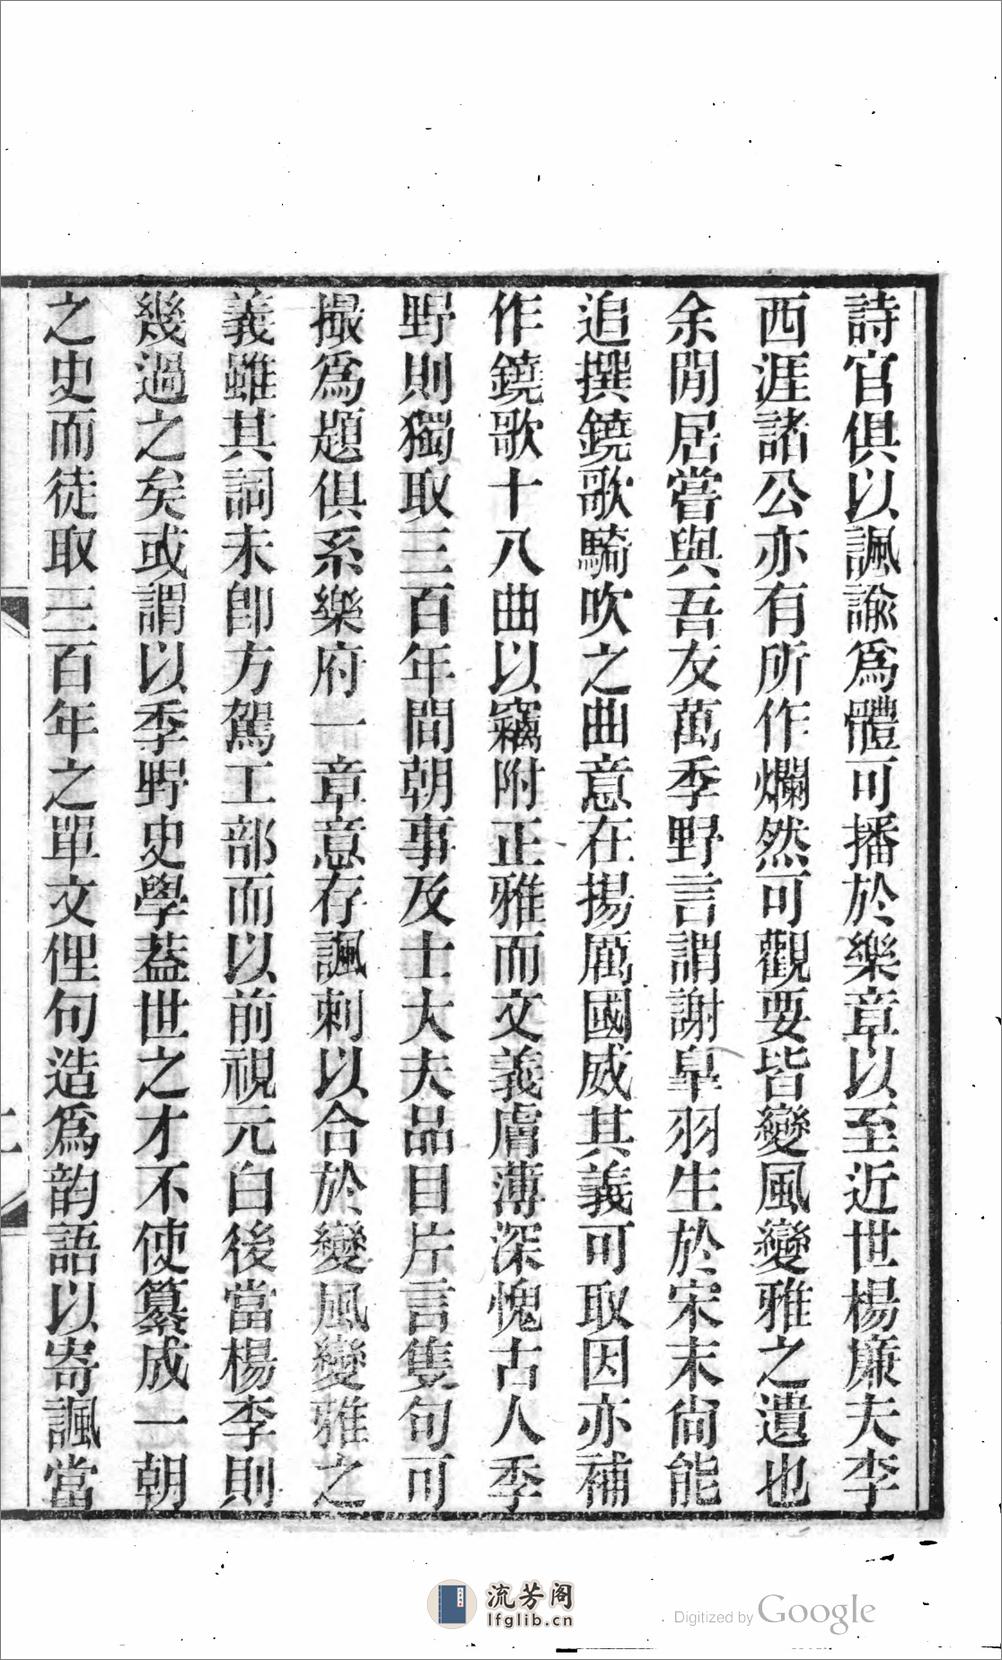 詩官俱以諷諭爲體可播於樂章以至近世楊廉夫李
西涯諸公亦有所作爛然可觀要皆變風變雅之遺也
余閒居嘗與吾友萬季野言謂謝臯羽生於宋末尙能
追撰鐃歌騎吹之曲意在揚厲國威其義可取因亦補
作鐃歌十八曲以竊附正雅而文義膚薄深愧古人季
野則獨取三百年間朝事及士大夫品目片言隻句可
撮爲題俱系樂府一章意存諷刺以合於變風變雅之
義雖其詞未卽方駕工部而以前視元白後當楊李則
幾過之矣或謂以季野史學葢世之才不使纂成一朝
之史而徒取三百年之單文俚句造爲韵語以寄諷當
流芳阁
lfglib.cn
Digitized by Google